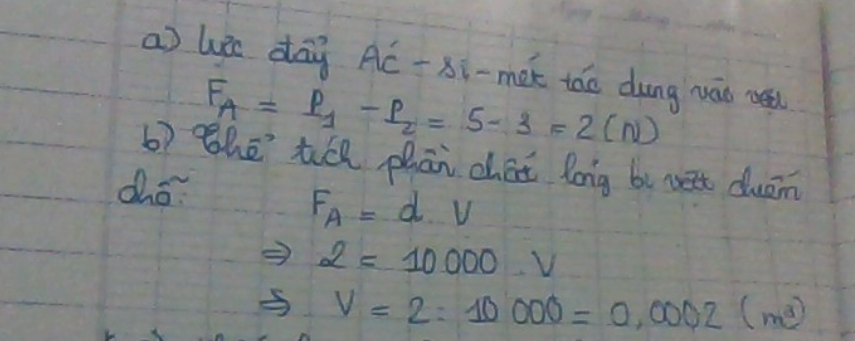 a) Lực đẩy Ác-si-mét tác dung vào vật
F_A = P_1 - P_2 = 5 - 3 = 2 (N)
b) Thể tích phần chất lỏng bị vật chiếm
chỗ:
F_A = d. V
=> 2 = 10000 . V
=> V = 2 : 10 000 = 0,0002 (m³)